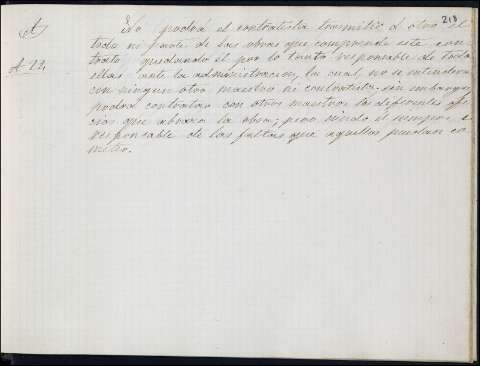 213
A
A 22
No podrá el contratista trasmitir á otro el
todo ni parte de las obras que comprende este con
trato quedando el por lo tanto responsable de todas
ellas ante la administracion, la cual no se entenderá
con ningun otro maestro ni contratista, sin embargo,
podrá contratar con otros maestros los diferentes ofi
cios que abraza la obra; pero siendo el siempre
responsable de las faltas que aquellos puedan co
meter.